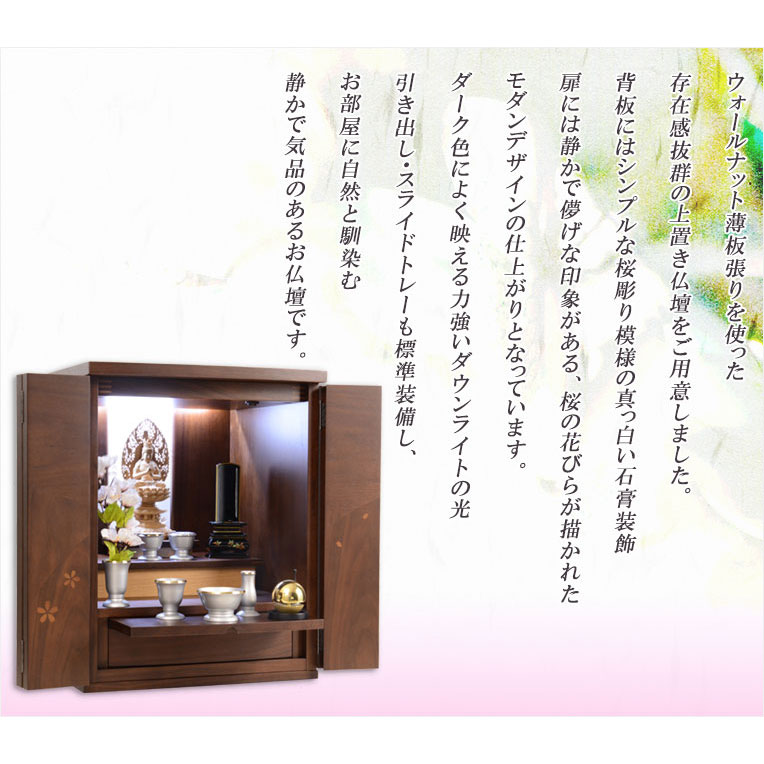 ウォールナット薄板張りを使った
存在感抜群の上置き仏壇をご用意しました。
背板にはシンプルな桜彫り模様の真っ白い石膏装飾
扉には静かで儚げな印象がある、桜の花びらが描かれた
モダンデザインの仕上がりとなっています。
ダーク色によく映える力強いダウンライトの光
引き出し・スライドトレーも標準装備し、
お部屋に自然と馴染む
静かで気品のあるお仏壇です。